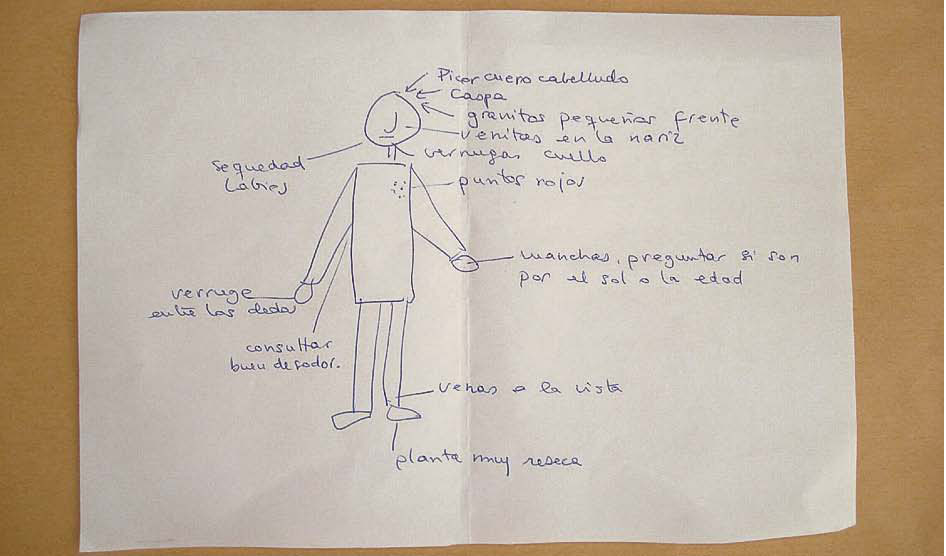 Picor cuero cabelludo
Caspa
granitos pequeños frente
venitas en la nariz
verrugas cuello
sequedad
labios
puntos rojos
manchas, preguntar si son
por el sol o la edad
verruga
entre los dedos
consultar
buen desodor.
venas a la vista
planta muy reseca